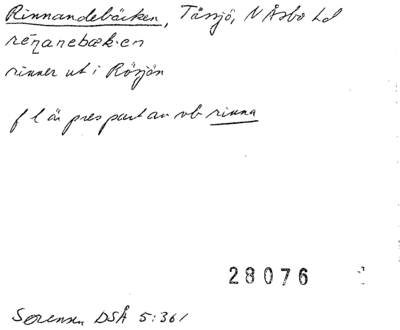 Rinnandebäcken, Tåssjö, N Åsbo hd
réŋanebæk·en
rinner ut i Rösjön
f l är pres part av vb rinna
28076
Sørensen DSÅ 5:361